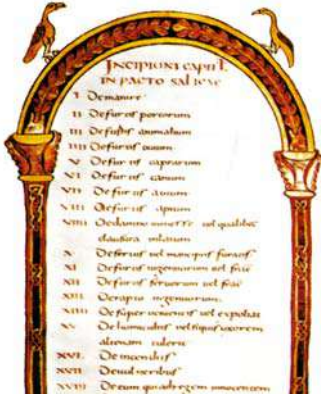 INCIPIUNT CAPITL
IN PACTO SALICAE
I De manire
II De furtis porcorum
III De furtis animalium
IIII De furtis ouium
V De furtis caprarum
VI De furtis canum
VII De furtis auium
VIII De furtis apium
VIIII De damno in messe uel qualibet
clausura inlatum
X De seruis uel mancipiis furatis
XI De furtis ingenuorum uel
XII De furtis seruorum uel
XIII De rapto ingenuorum
XIIII De super uel expoliat
XV De homicidiis uel si quis uxorem
alienam tulerit
XVI De incendiis
XVII De uulneribus
XVIII De eum qui ad regem innocentem